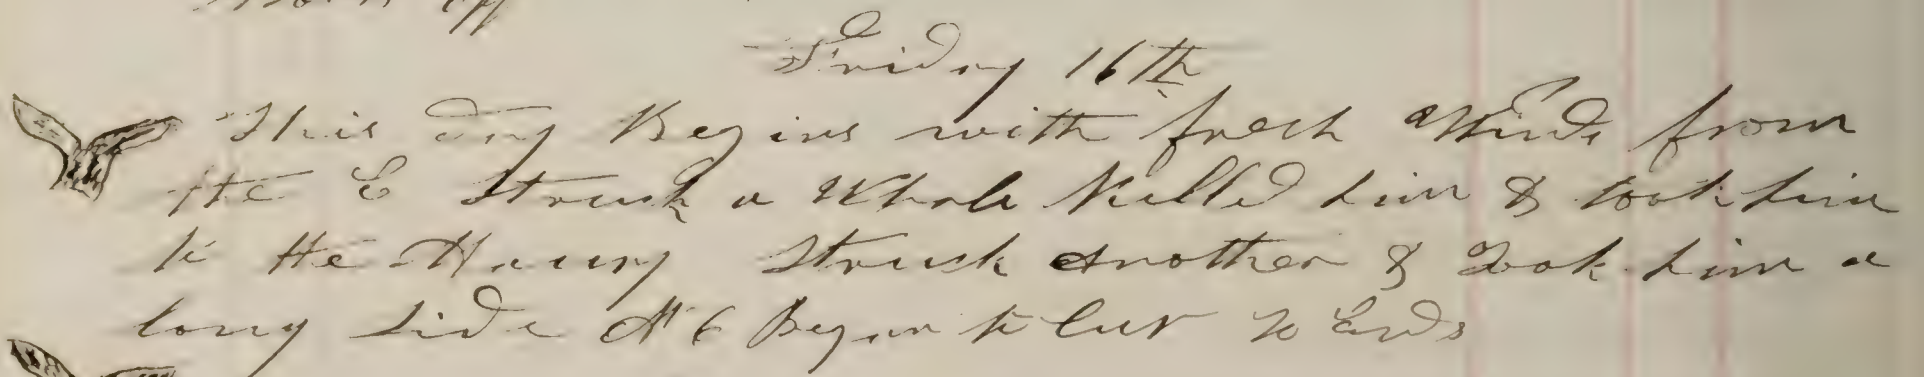 Friday 16th
This day Begins with fresh Winds from
the E Struck a Whale Killed him & took him
to the Struck Another & Took him a
long side At 6 Began to Cut So Ends